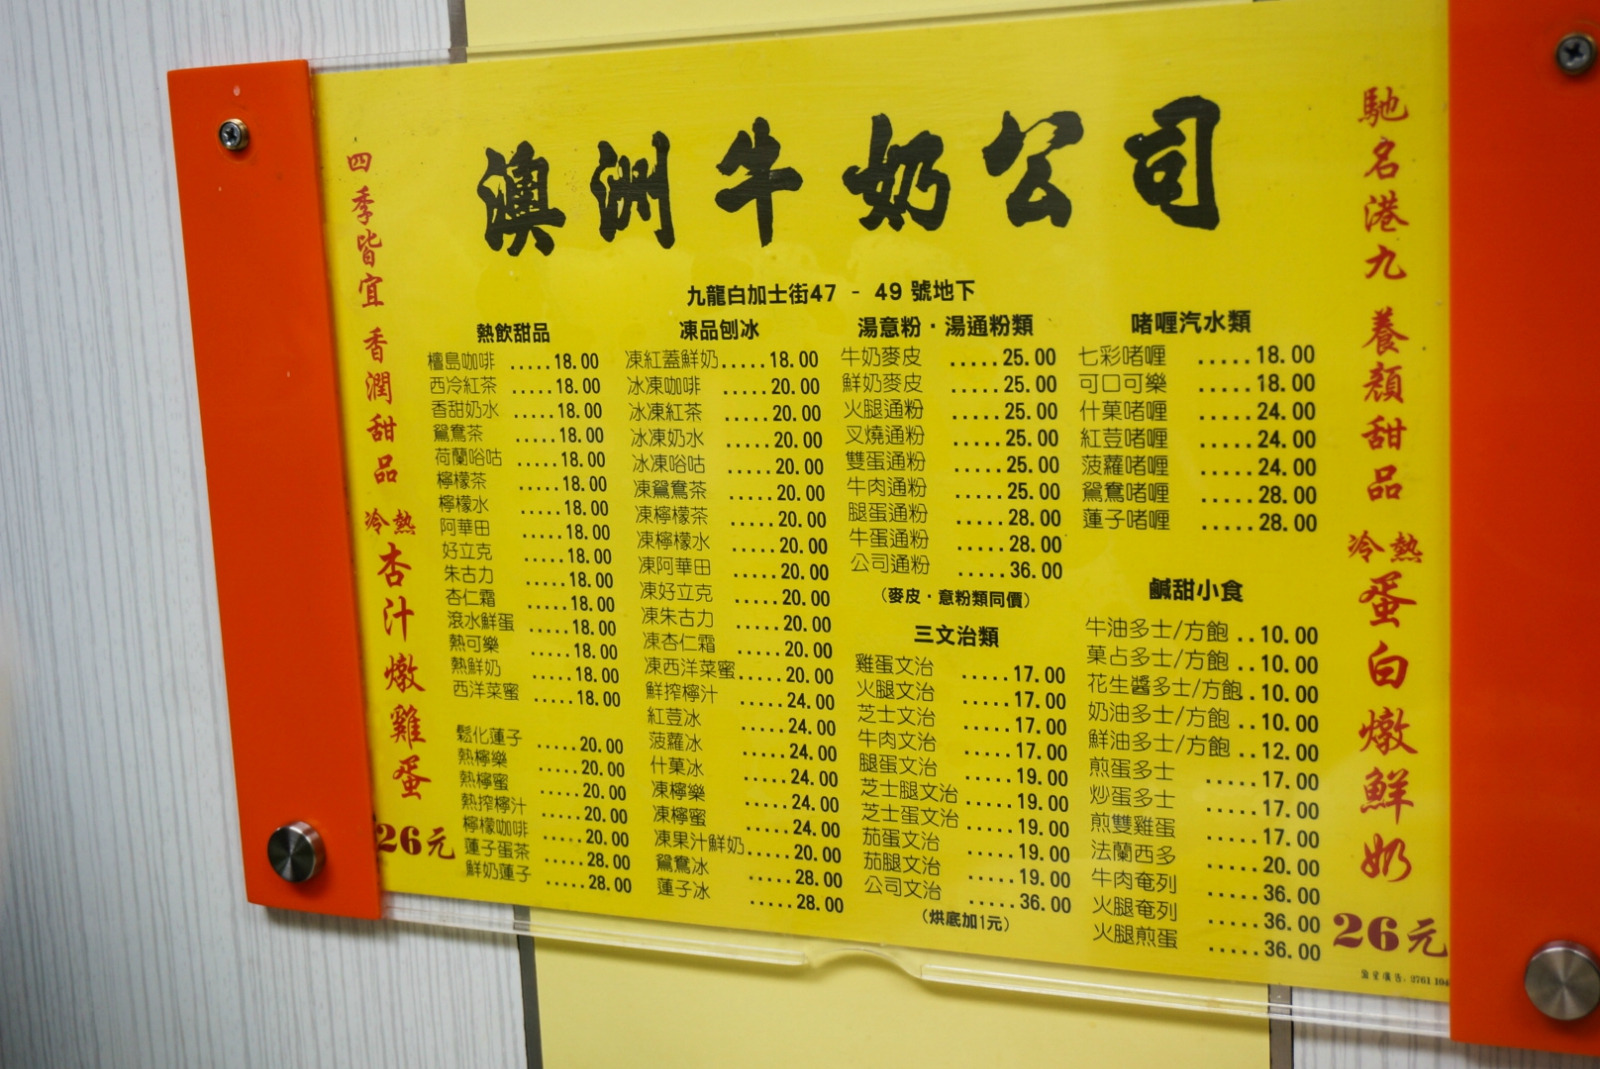 澳洲牛奶公司
九龍白加士街47 - 49 號地下
四季皆宜 香潤甜品 冷熱 杏汁燉雞蛋
26元
熱飲甜品
檀島咖啡 .....18.00
西冷紅茶 .....18.00
香甜奶水 .....18.00
鴛鴦茶 .....18.00
荷蘭唂咕 .....18.00
檸檬茶 .....18.00
檸檬水 .....18.00
阿華田 .....18.00
好立克 .....18.00
朱古力 .....18.00
杏仁霜 .....18.00
滾水鮮蛋 .....18.00
熱可樂 .....18.00
熱鮮奶 .....18.00
西洋菜蜜 .....18.00
鬆化蓮子 .....20.00
熱檸樂 .....20.00
熱檸蜜 .....20.00
熱搾檸汁 .....20.00
檸檬咖啡 .....20.00
蓮子蛋茶 .....28.00
鮮奶蓮子 .....28.00
凍品刨冰
凍紅蓋鮮奶.....18.00
冰凍咖啡 .....20.00
冰凍紅茶 .....20.00
冰凍奶水 .....20.00
冰凍唂咕 .....20.00
凍鴛鴦茶 .....20.00
凍檸檬茶 .....20.00
凍檸檬水 .....20.00
凍阿華田 .....20.00
凍好立克 .....20.00
凍朱古力 .....20.00
凍杏仁霜 .....20.00
凍西洋菜蜜.....20.00
鮮搾檸汁 .....24.00
紅荳冰 .....24.00
菠蘿冰 .....24.00
什菓冰 .....24.00
凍檸樂 .....24.00
凍檸蜜 .....24.00
凍果汁鮮奶.....20.00
鴛鴦冰 .....28.00
蓮子冰 .....28.00
湯意粉·湯通粉類
牛奶麥皮 .....25.00
鮮奶麥皮 .....25.00
火腿通粉 .....25.00
叉燒通粉 .....25.00
雙蛋通粉 .....25.00
牛肉通粉 .....25.00
腿蛋通粉 .....28.00
牛蛋通粉 .....28.00
公司通粉 .....36.00
(麥皮·意粉類同價)
三文治類
雞蛋文治 .....17.00
火腿文治 .....17.00
芝士文治 .....17.00
牛肉文治 .....17.00
腿蛋文治 .....19.00
芝士腿文治 .....19.00
芝士蛋文治 .....19.00
茄蛋文治 .....19.00
茄腿文治 .....19.00
公司文治 .....36.00
(烘底加1元)
啫喱汽水類
七彩啫喱 .....18.00
可口可樂 .....18.00
什菓啫喱 .....24.00
紅荳啫喱 .....24.00
菠蘿啫喱 .....24.00
鴛鴦啫喱 .....28.00
蓮子啫喱 .....28.00
鹹甜小食
牛油多士/方飽 ..10.00
菓占多士/方飽 ..10.00
花生醬多士/方飽..10.00
奶油多士/方飽 ..10.00
鮮油多士/方飽 ..12.00
煎蛋多士 .....17.00
炒蛋多士 .....17.00
煎雙雞蛋 .....17.00
法蘭西多 .....20.00
牛肉奄列 .....36.00
火腿奄列 .....36.00
火腿煎蛋 .....36.00
馳名港九 養顏甜品 冷熱 蛋白燉鮮奶
26元